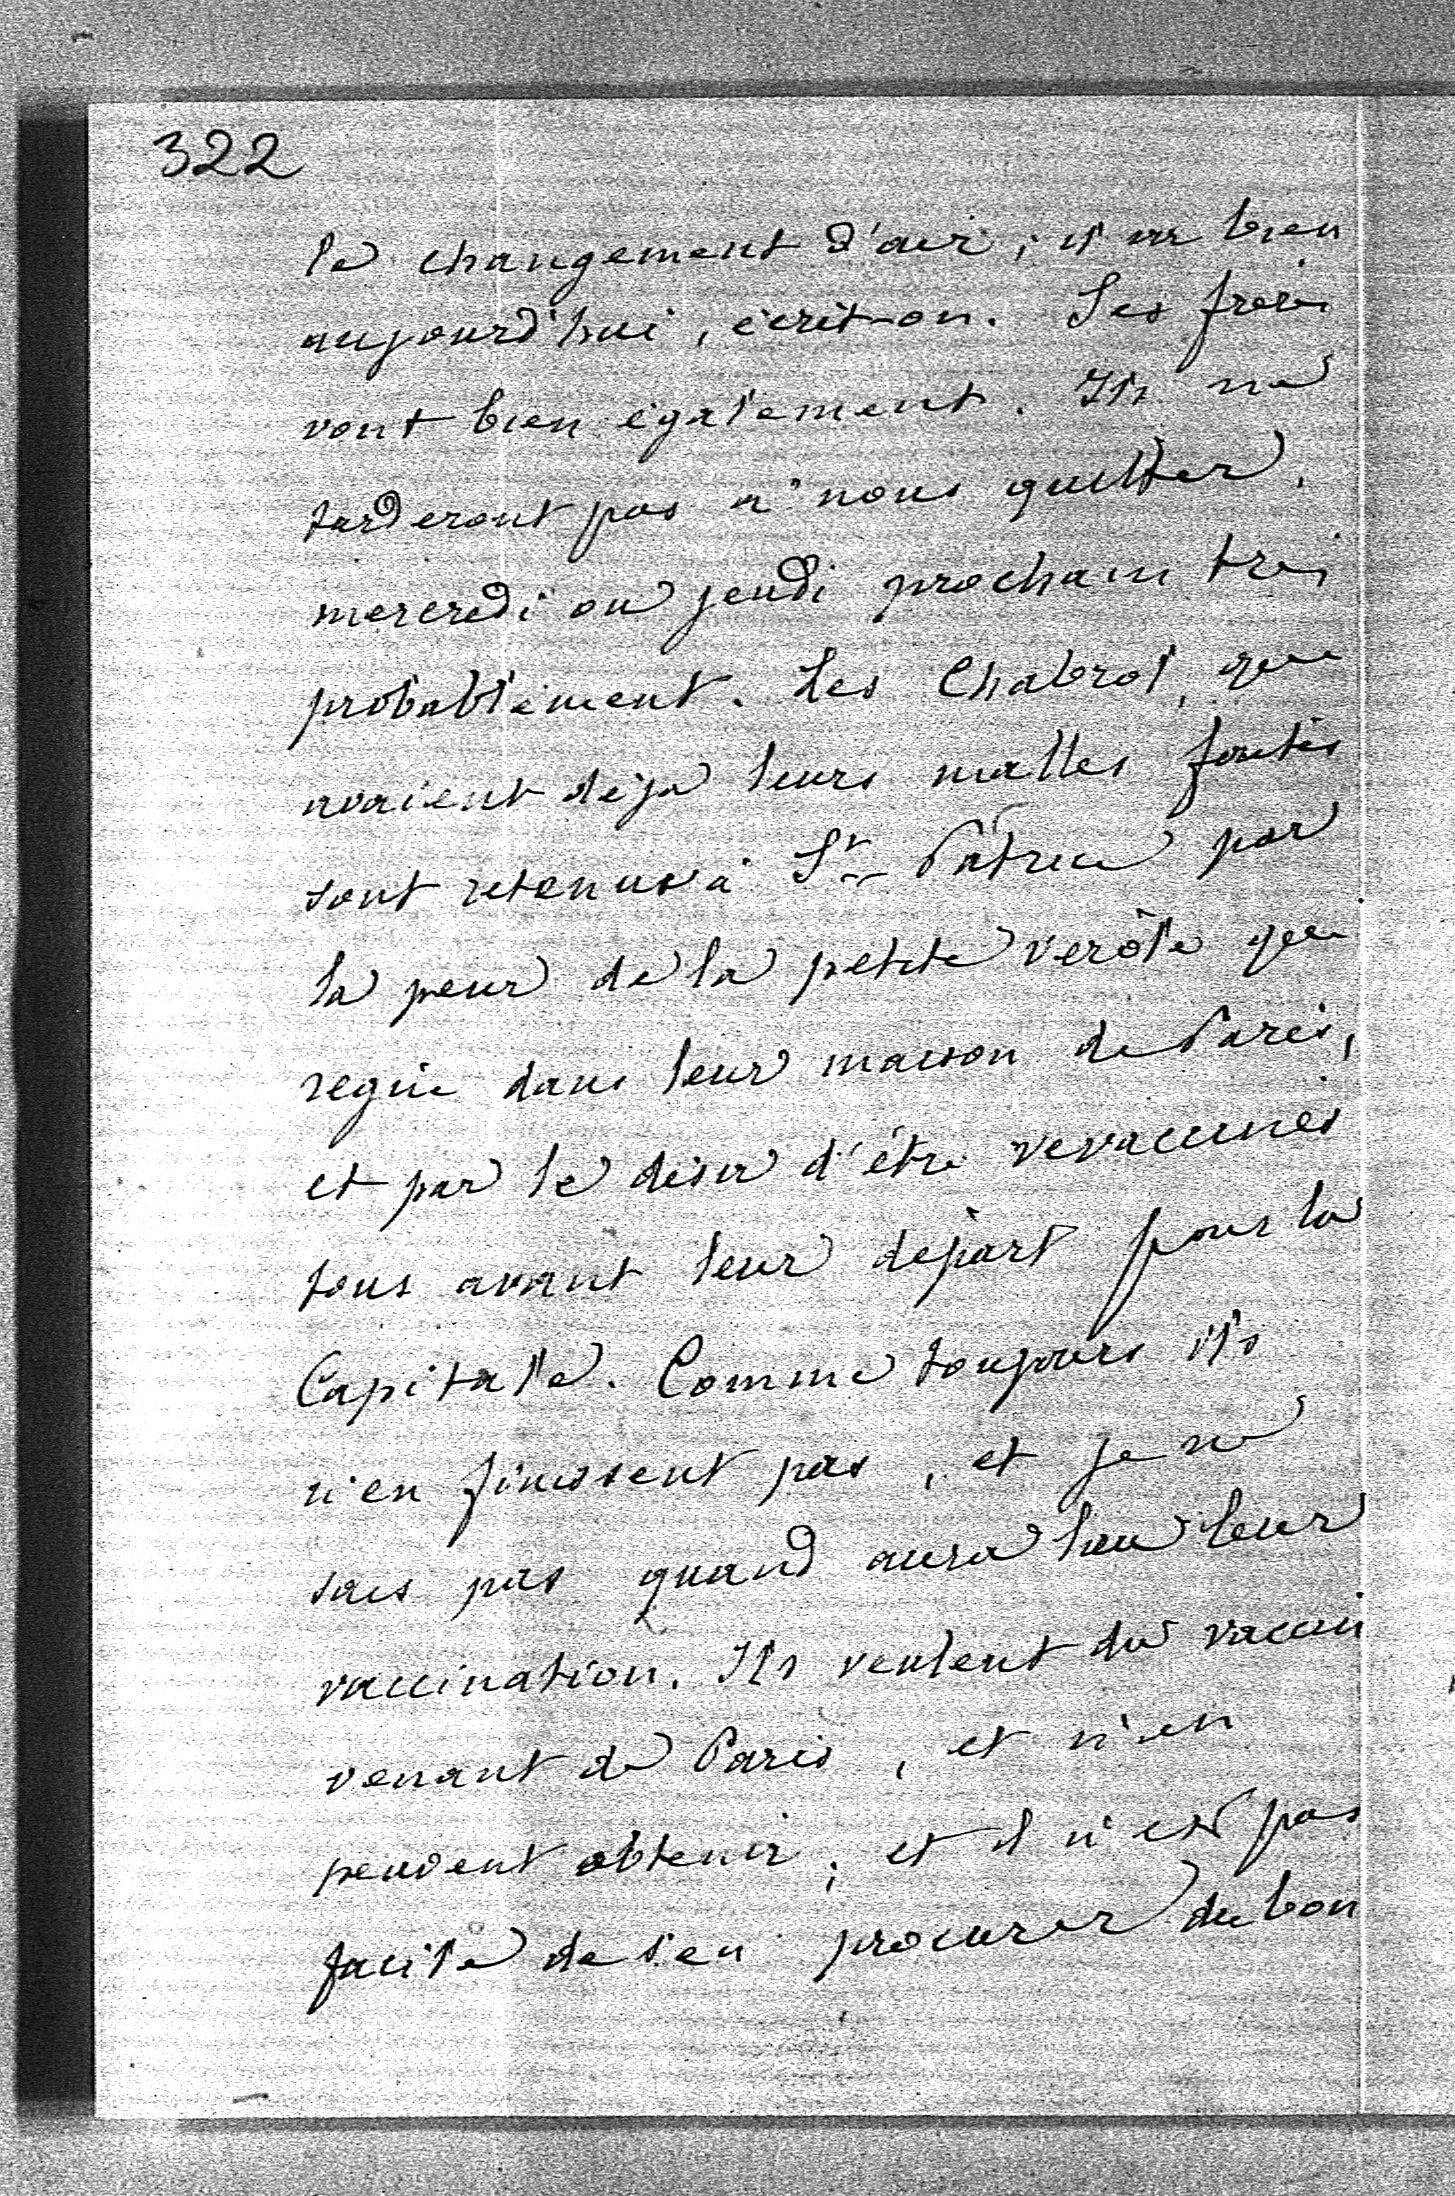 322
le changement d'air ; il va bien
aujourd'hui, écrit-on. Ses frères
vont bien également. Ils ne
tarderont pas à nous quitter,
mercredi ou jeudi prochain très
probablement. Les Chabrol, qui
avaient déja leurs malles faites
sont retenus à St Patrice par
la peur de la petite verôle qui
regne dans leur maison de Paris,
et par le désir d'étre revaccinés
tous avant leur départ pour la
Capitale. Comme toujours ils
n'en finissent pas, et je ne
sais pas quand aura lieu leur
vaccination. Ils veulent du vaccin
venant de Paris, et n'en
peuvent obtenir ; et il n'est pas
facile de s'en procurer du bon